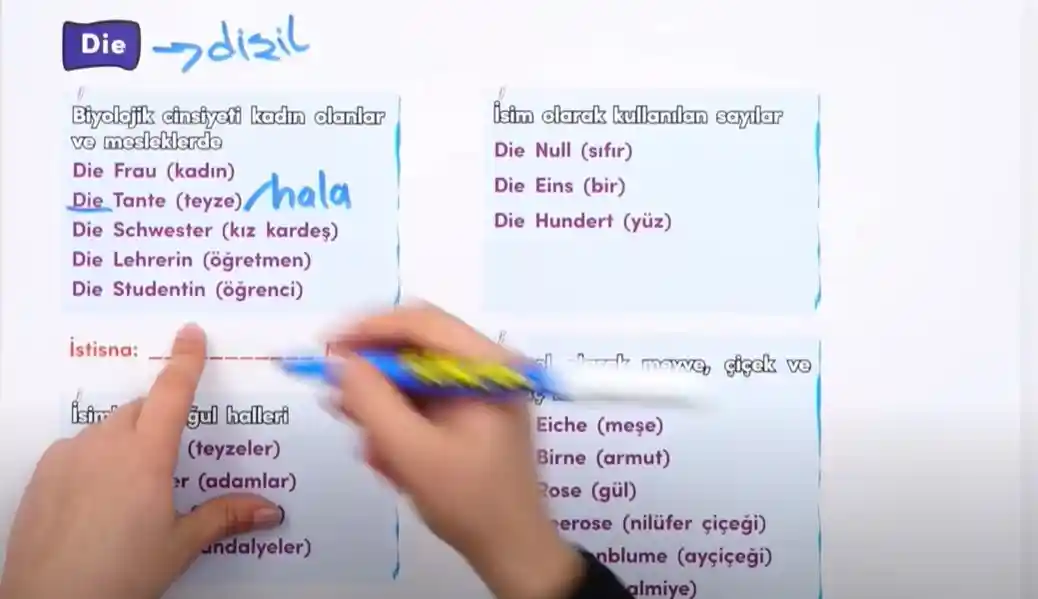 Die → dişil
Biyolojik cinsiyeti kadın olanlar
ve mesleklerde
Die Frau (kadın)
Die Tante (teyze) / hala
Die Schwester (kız kardeş)
Die Lehrerin (öğretmen)
Die Studentin (öğrenci)
İstisna:
halleri
(teyzeler)
(adamlar)
İsim olarak kullanılan sayılar
Die Null (sıfır)
Die Eins (bir)
Die Hundert (yüz)
meyve, çiçek ve
Eiche (meşe)
Birne (armut)
Rose (gül)
(nilüfer çiçeği)
(ayçiçeği)